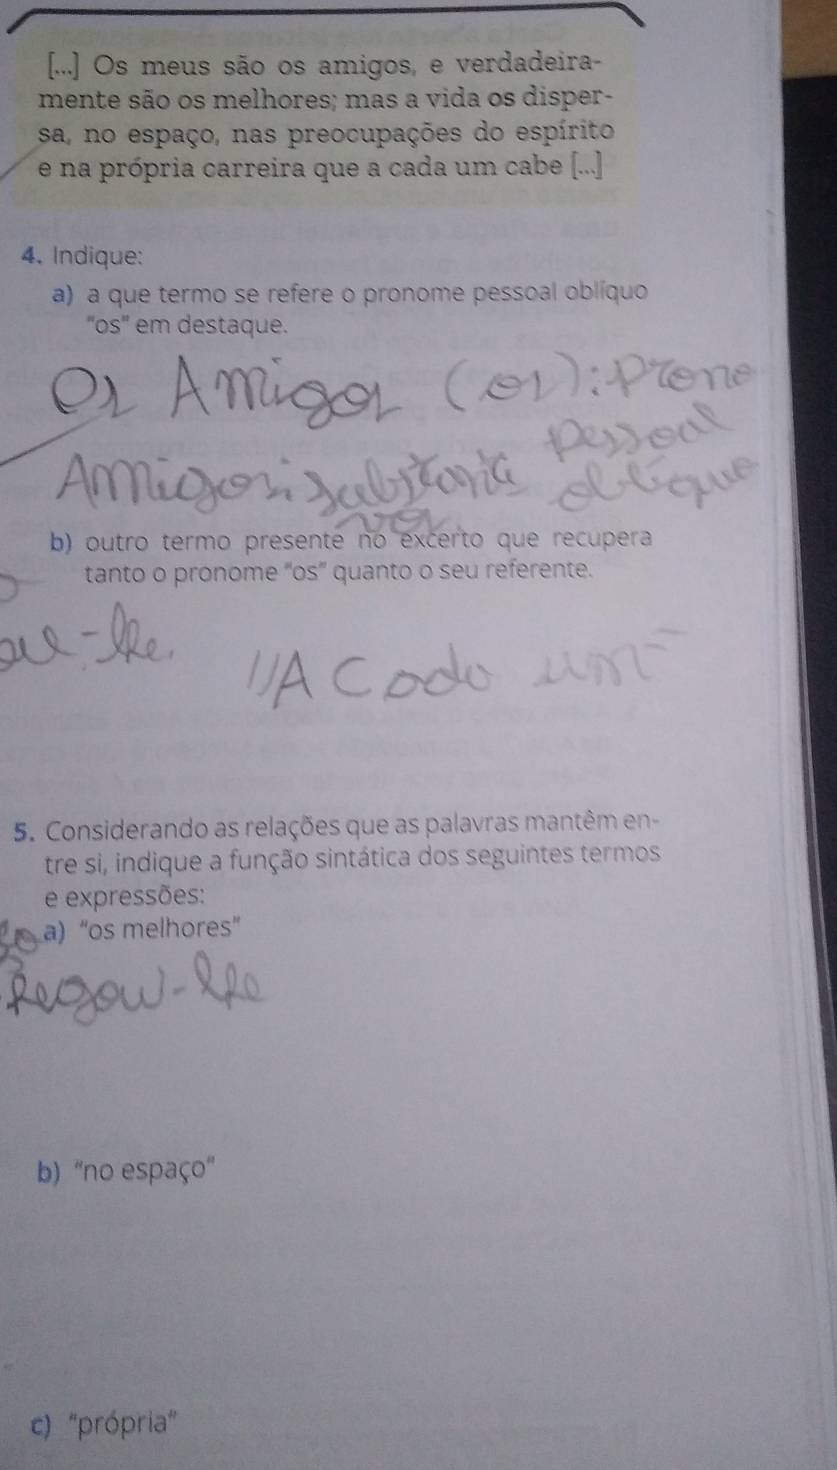 [...] Os meus são os amigos, e verdadeira-
mente são os melhores; mas a vida os disper-
sa, no espaço, nas preocupações do espírito
e na própria carreira que a cada um cabe [...]
4. Indique:
a) a que termo se refere o pronome pessoal oblíquo
"os" em destaque.
Os Amigos (os): Prono
pessoal
Amigos:
b) outro termo presente no excerto que recupera
tanto o pronome "os" quanto o seu referente.
"A Cada um
5. Considerando as relações que as palavras mantêm en-
tre si, indique a função sintática dos seguintes termos
e expressões:
a) "os melhores"
b) "no espaço"
c) "própria"